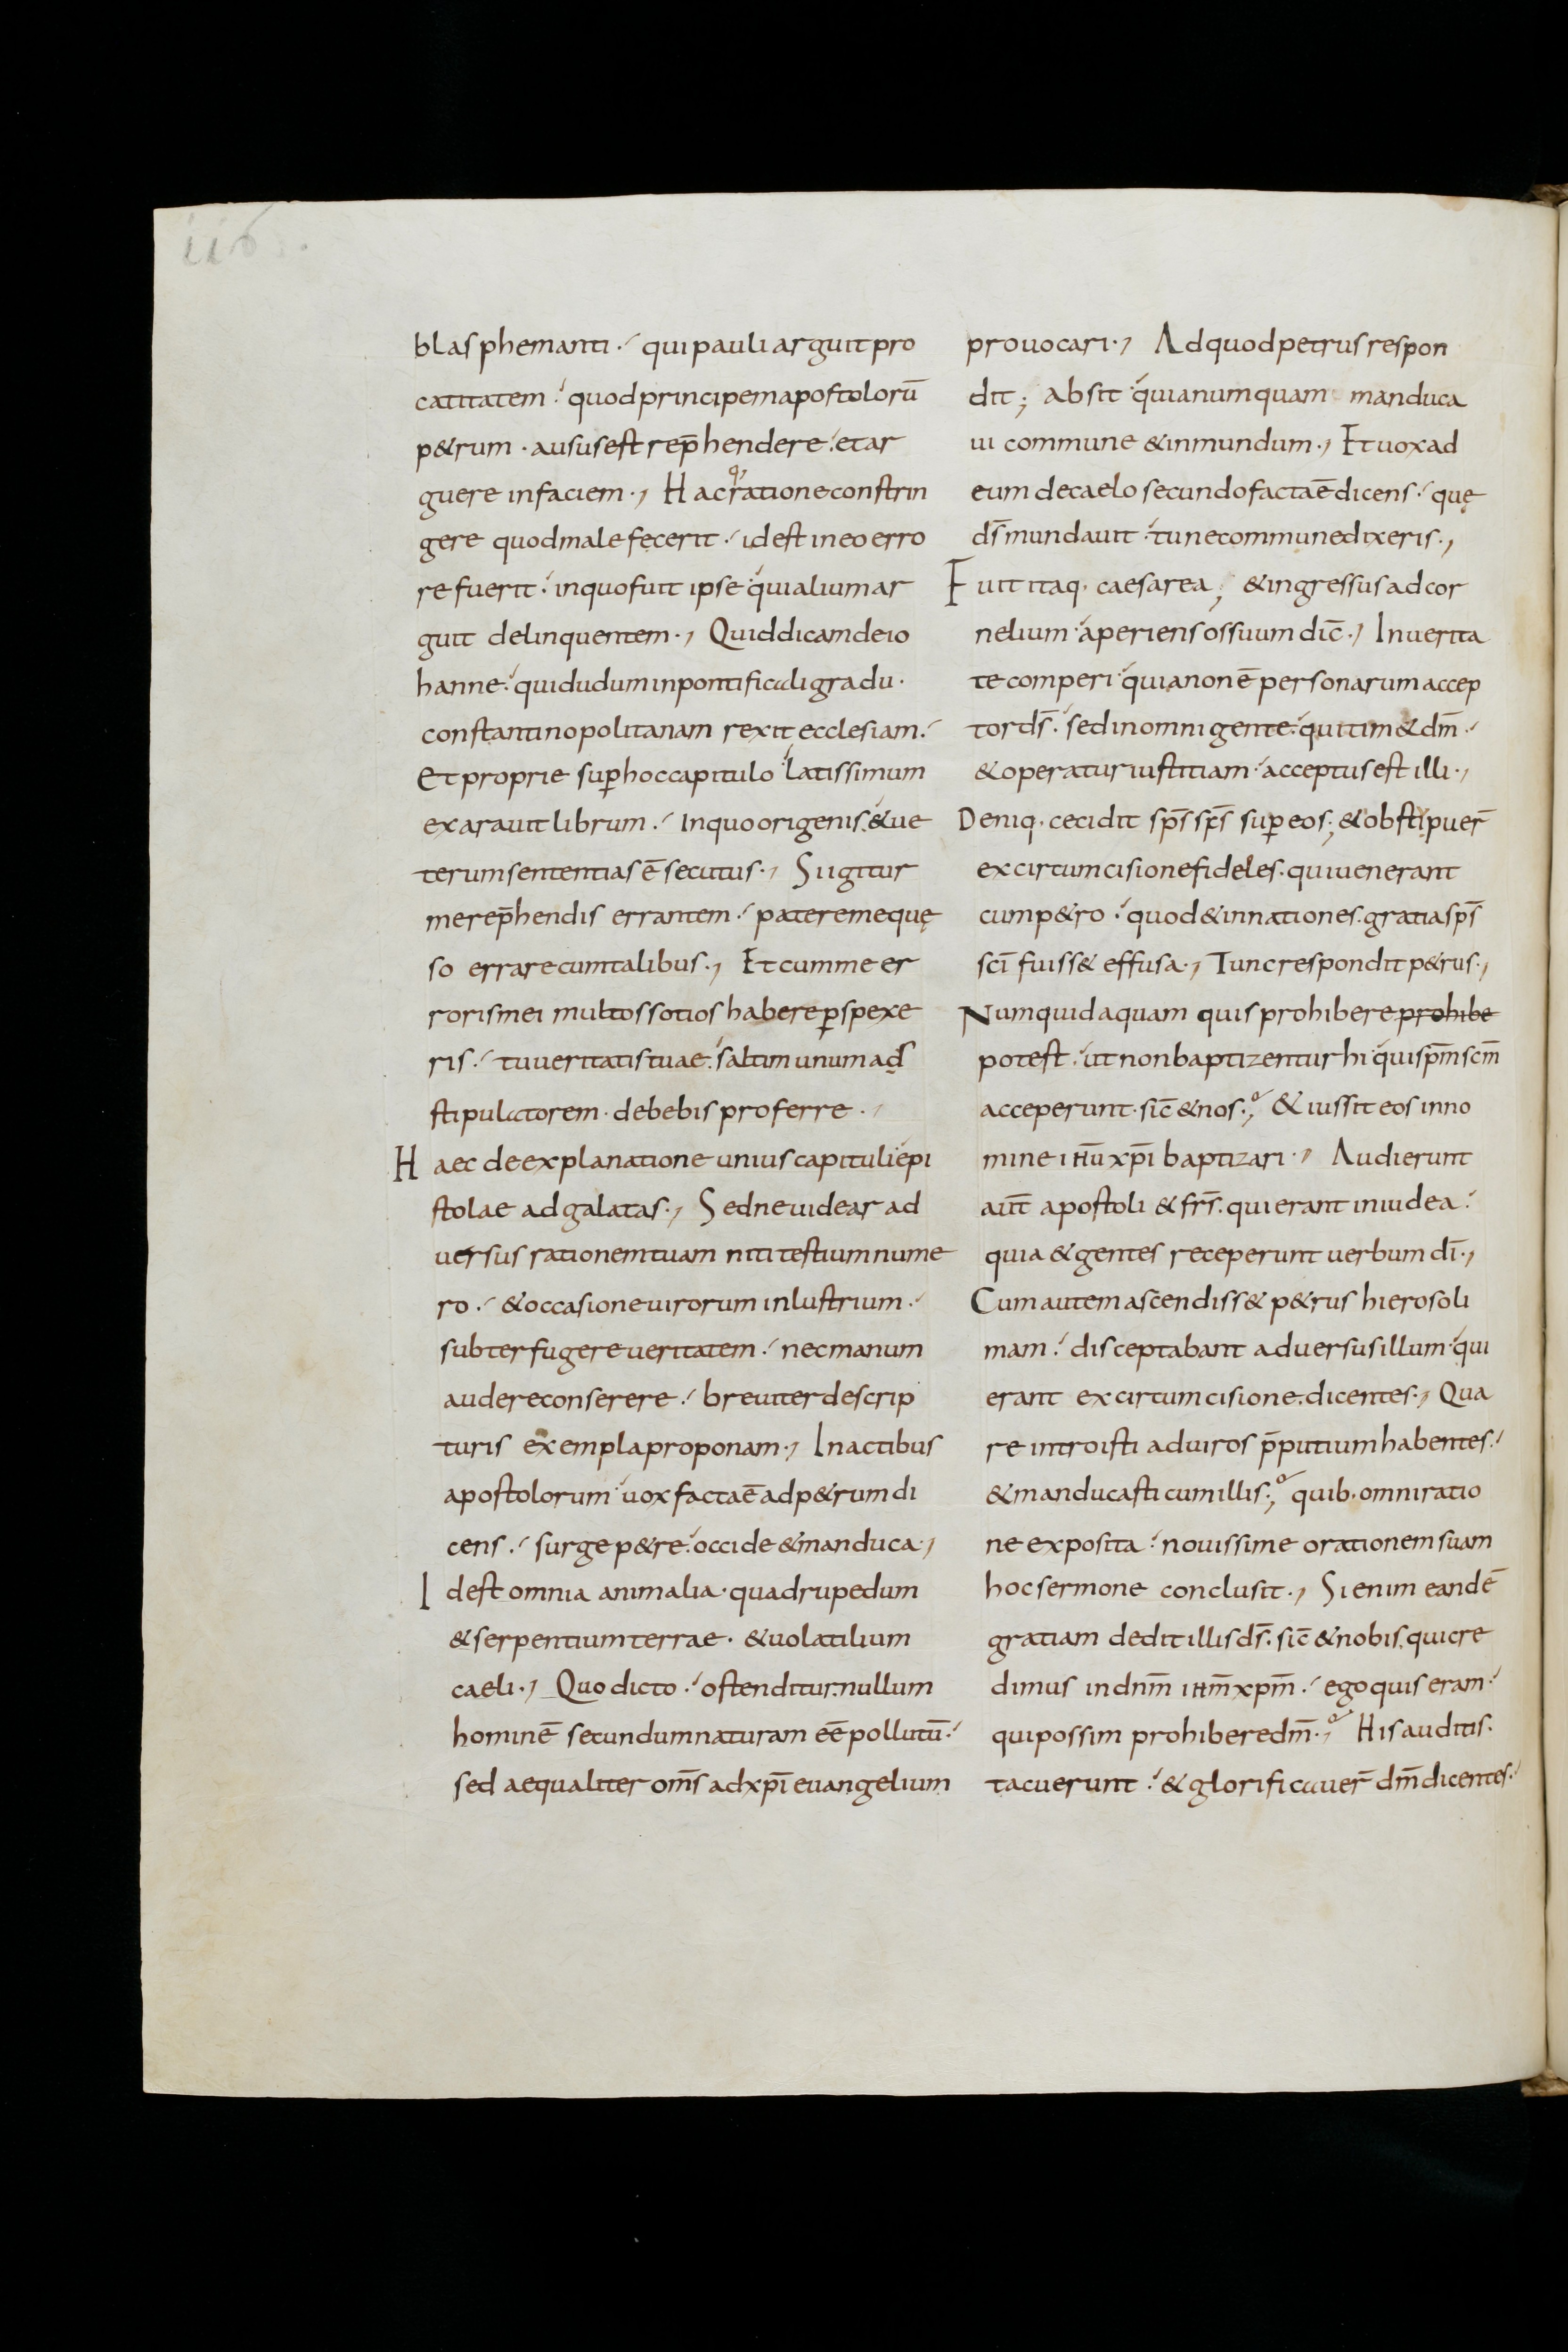 116.
blasphemanti. qui pauli arguit pro
catitatem. quod principem apostolorū
p&rum. ausus est rep̄hendere. et ar
guere in faciem., Hac ratione constrin
gere quod male fecerit. id est in eo erro
re fuerit. in quo fuit ipse qui alium ar
guit delinquentem., Quid dicam de io
hanne. qui dudum in pontificali gradu.
constantinopolitanam rexit ecclesiam.
Et proprie sup̄ hoc capitulo latissimum
exarauit librum. In quo origenis. & ue
terum sententias ē secutus., Si igitur
me rep̄hendis errantem. patere me quę
so errare cum talibus., Et cum me er
roris mei multos sotios habere p̄spexe
ris. tu ueritatis tuae. saltim unum ad
stipulatorem. debebis proferre.
Haec de explanatione unius capituli epi
stolae ad galatas., Sed ne uidear ad
uersus rationem tuam niti testium nume
ro. & occasione uirorum inlustrium.
subterfugere ueritatem. nec manum
audere conserere. breuiter descrip
turis exempla proponam., In actibus
apostolorum uox facta ē ad p&rum di
cens. surge p&re. occide & manduca.,
Id est omnia animalia. quadrupedum
& serpentium terrae. & uolatilium
caeli., Quo dicto. ostenditur. nullum
hominē secundum naturam eē pollutū.
sed aequaliter om̄s ad xp̄i euangelium
prouocari., Ad quod petrus respon
dit; absit quia numquam manduca
ui commune & inmundum., Et uox ad
eum de caelo secundo facta ē dicens. quę
ds̄ mundauit. tu ne commune dixeris.,
Fuit itaq. caesarea; & ingressus ad cor
nelium. aperiens os suum dic̄., In uerita
te comperi quia non ē personarum accep
tor ds̄. sed in omni gente. qui tim& dm̄.
& operatur iustitiam. acceptus est illi.,
Deniq. cecidit sp̄s sc̄s sup̄ eos; & obstipuer̄
ex circumcisione fideles. qui uenerant
cum p&ro. quod & in nationes. gratia sp̄s
sc̄i fuiss& effusa., Tunc respondit p&rus.,
Numquid aquam quis prohibere prohibe
potest. ut non baptizentur hi qui sp̄m sc̄m
acceperunt. sic̄ & nos.; & iussit eos in no
mine ihū xp̄i baptizari., Audierunt
aut̄ apostoli & fr̄s. qui erant in iudea.
quia & gentes receperunt uerbum dī.,
Cum autem ascendiss& p&rus hierosoli
mam. disceptabant aduersus illum. qui
erant ex circumcisione. dicentes., Qua
re introisti ad uiros p̄putium habentes.
& manducasti cum illis.; quib. omni ratio
ne exposita. nouissime orationem suam
hoc sermone conclusit., Si enim eandē
gratiam dedit illis ds̄. sic̄ & nobis. qui cre
dimus in dnm̄ ihm̄ xpm̄. ego quis eram.
qui possim prohibere dm̄.; His auditis.
tacuerunt. & glorificauer̄ dm̄ dicentes.